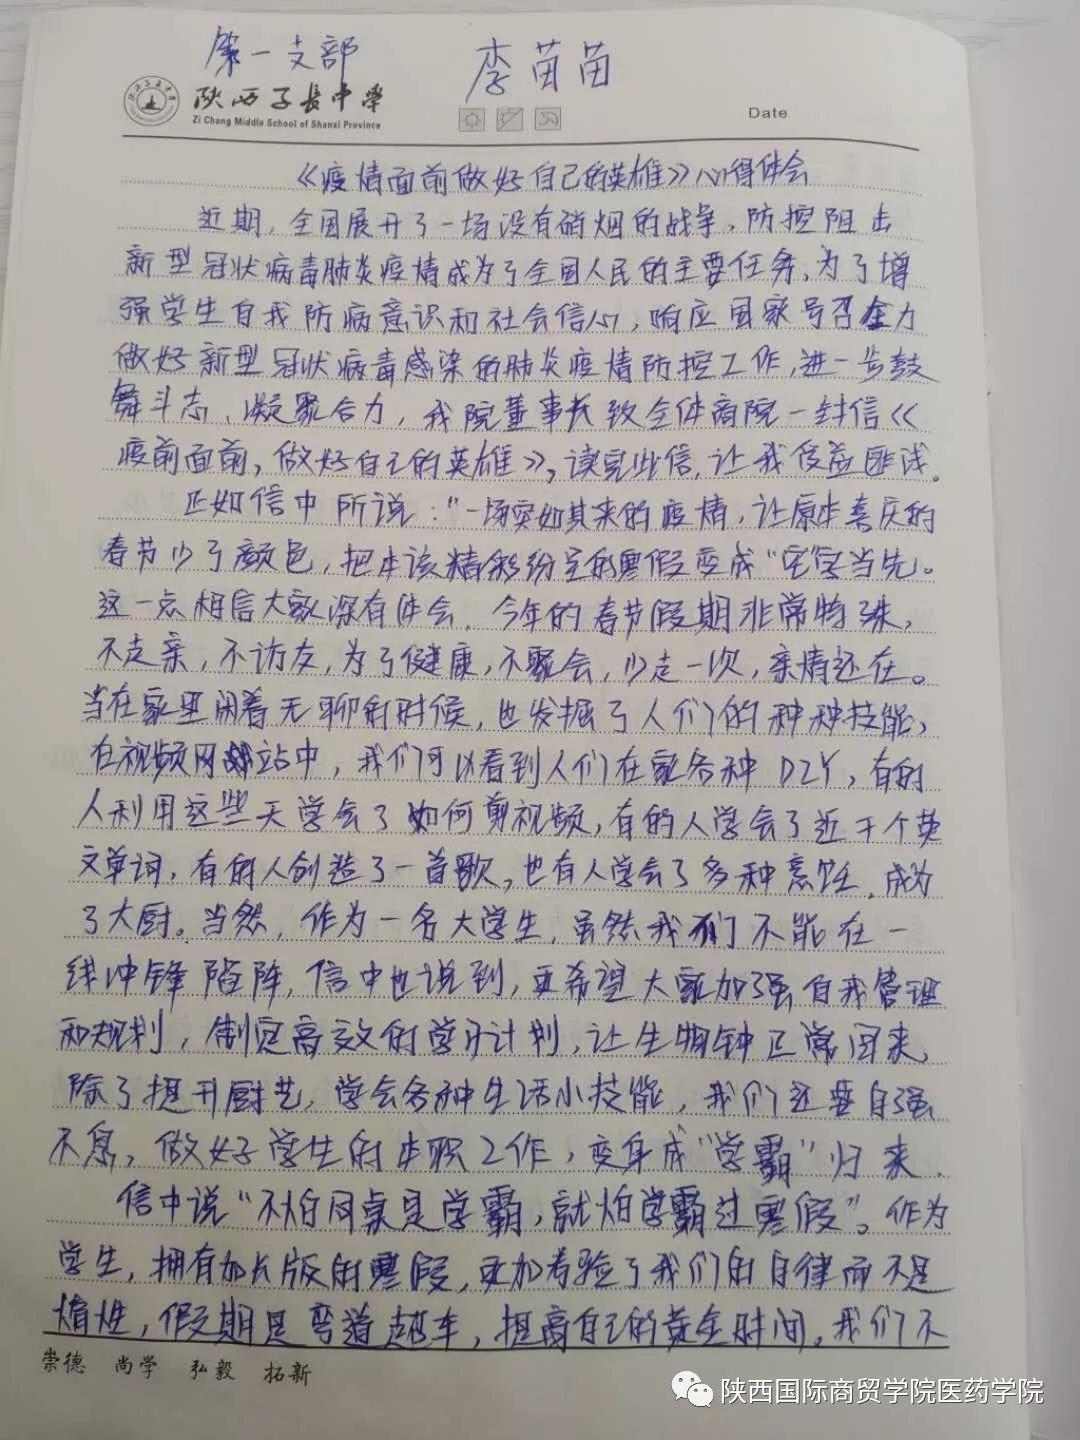 第一支部 李苗苗
陕西子长中学
Zi Chang Middle School of Shanxi Province
Date
《疫情面前做好自己的英雄》心得体会
近期，全国展开了一场没有硝烟的战争，防控阻击
新型冠状病毒肺炎疫情成为了全国人民的主要任务，为了增
强学生自我防病意识和社会信心，响应国家号召全力
做好新型冠状病毒感染的肺炎疫情防控工作，进一步鼓
舞斗志、凝聚合力，我院董事长致全体商院一封信《
疫前面前，做好自己的英雄》，读完此信，让我受益匪浅。
正如信中所说：“一场突如其来的疫情，让原本喜庆的
春节少了颜色，把本该精彩纷呈的寒假变成“宅”字当先。
这一点相信大家深有体会，今年的春节假期非常特殊，
不走亲，不访友，为了健康，不聚会，少走一次，亲情还在。
当在家里闲着无聊的时候，也发掘了人们的种种技能，
在视频网站中，我们可以看到人们在家各种DZY，有的
人利用这些天学会了如何剪视频，有的人学会了近千个英
文单词，有的人创造了一首歌，也有人学会了多种烹饪，成为
了大厨。当然，作为一名大学生，虽然我们不能在一
线冲锋陷阵，信中也说到，更希望大家加强自我管理
和规划，制定高效的学习计划，让生物钟正常回来，
除了提升厨艺，学会各种生活小技能，我们还要自强
不息，做好学生的本职工作，变身成“学霸”归来。
信中说“不怕同桌是学霸，就怕学霸过寒假”。作为
学生，拥有加长版的寒假，更加考验了我们的自律而不是
惰性，假期是弯道超车，提高自己的黄金时间，我们不
崇德 尚学 弘毅 拓新
陕西国际商贸学院医药学院